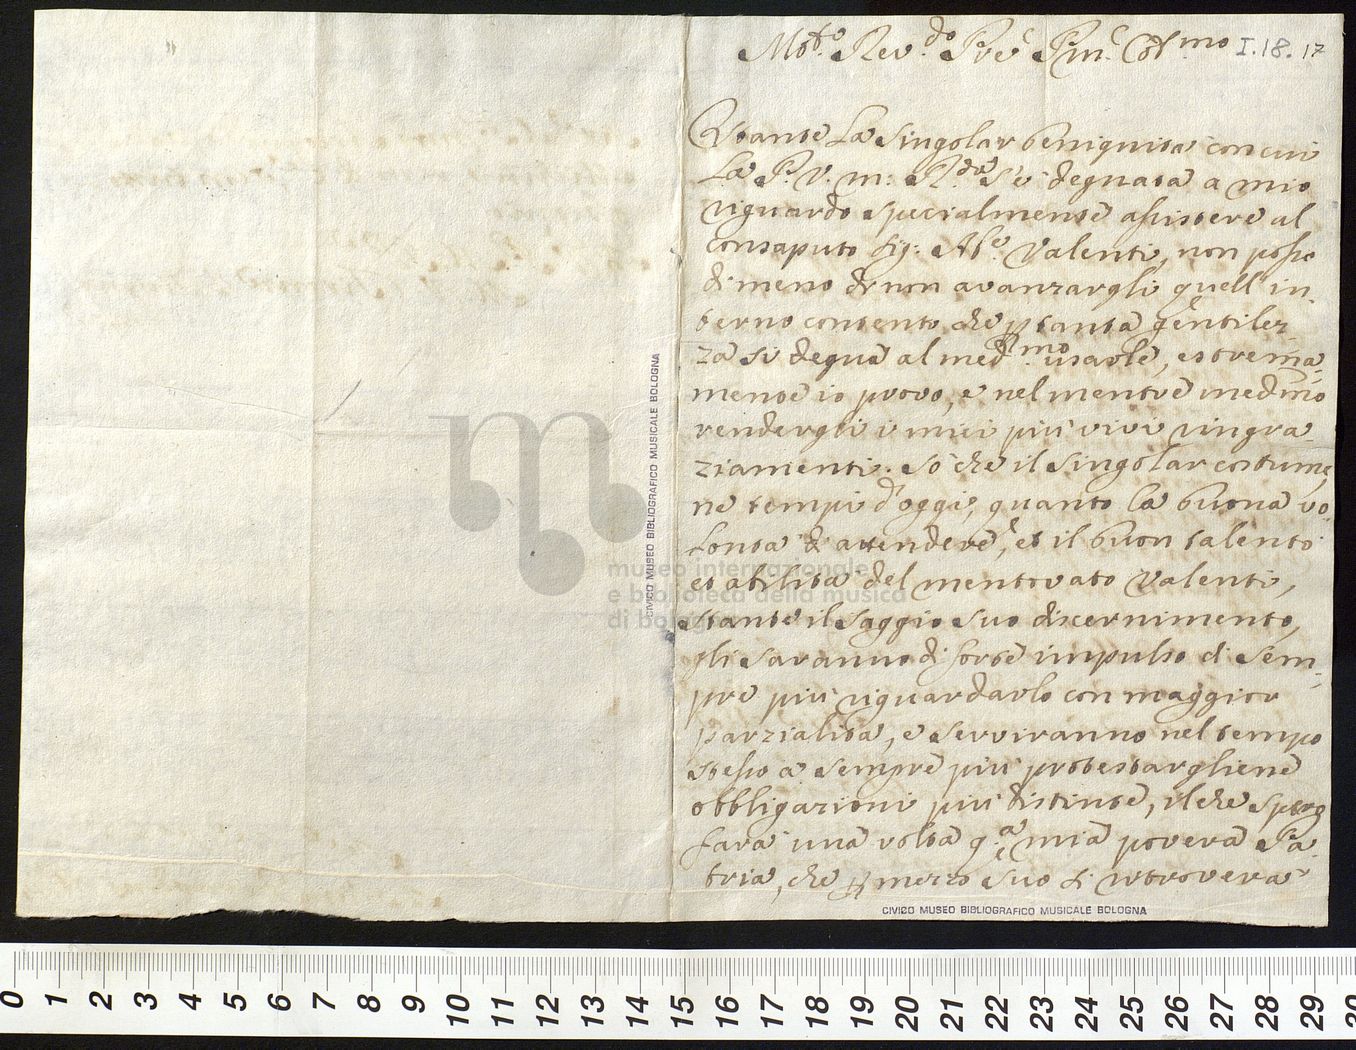 Mo.to Rev.do Pre Pmo Colmo I.18.17
Stante La singolar benignita con cui
La P. V. m: R.da si è degnata a mio
riguardo specialmente assistere al
consaputo Sig: Ab.e Valenti, non posso
di meno di non avanzargli quell' in-
terno contento che p tanta gentilez
za si degna al med.mo usarle, estrema-
mente io provo, e nel mentre medmo
rendergli i miei più vivi ringra-
ziamenti. So che il singolar costume,
ne tempi d'oggi, quanto la buona vo-
lonta d' attendere, et il buon talento
et abilita del mentovato Valenti,
stante il saggio suo discernimento,
gli saranno di forte impulso di sem-
pre più riguardarlo con maggior
parzialita, e serviranno nel tempo
stesso a sempre più protestargliene
obbligazioni più distinte, il che spero
fara una volta q.a mia povera Pa-
tria, che p mezzo suo si ritroverà
CIVICO MUSEO BIBLIOGRAFICO MUSICALE BOLOGNA
CIVICO MUSEO BIBLIOGRAFICO MUSICALE BOLOGNA
museo internazionale
e biblioteca della musica
di bologna
0 1 2 3 4 5 6 7 8 9 10 11 12 13 14 15 16 17 18 19 20 21 22 23 24 25 26 27 28 29 30